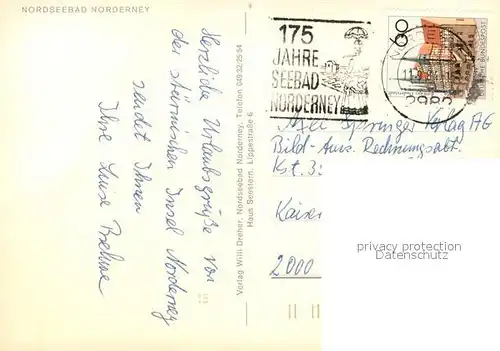 NORDSEEBAD NORDERNEY
Herzliche Urlaubsgrüße von
der stürmischen Insel Norderney
sendet Ihnen
Ihre Luise
Verlag Willi Dreher, Nordseebad Norderney, Telefon 049 32/25 54
Haus Seestern, Lippestraße 6
175
JAHRE
SEEBAD
NORDERNEY
60
Axel Springer Verlag AG
Bild-Ausl. Rechnungsabt.
Kst. 3
Kaiser
2000
privacy protection
Datenschutz